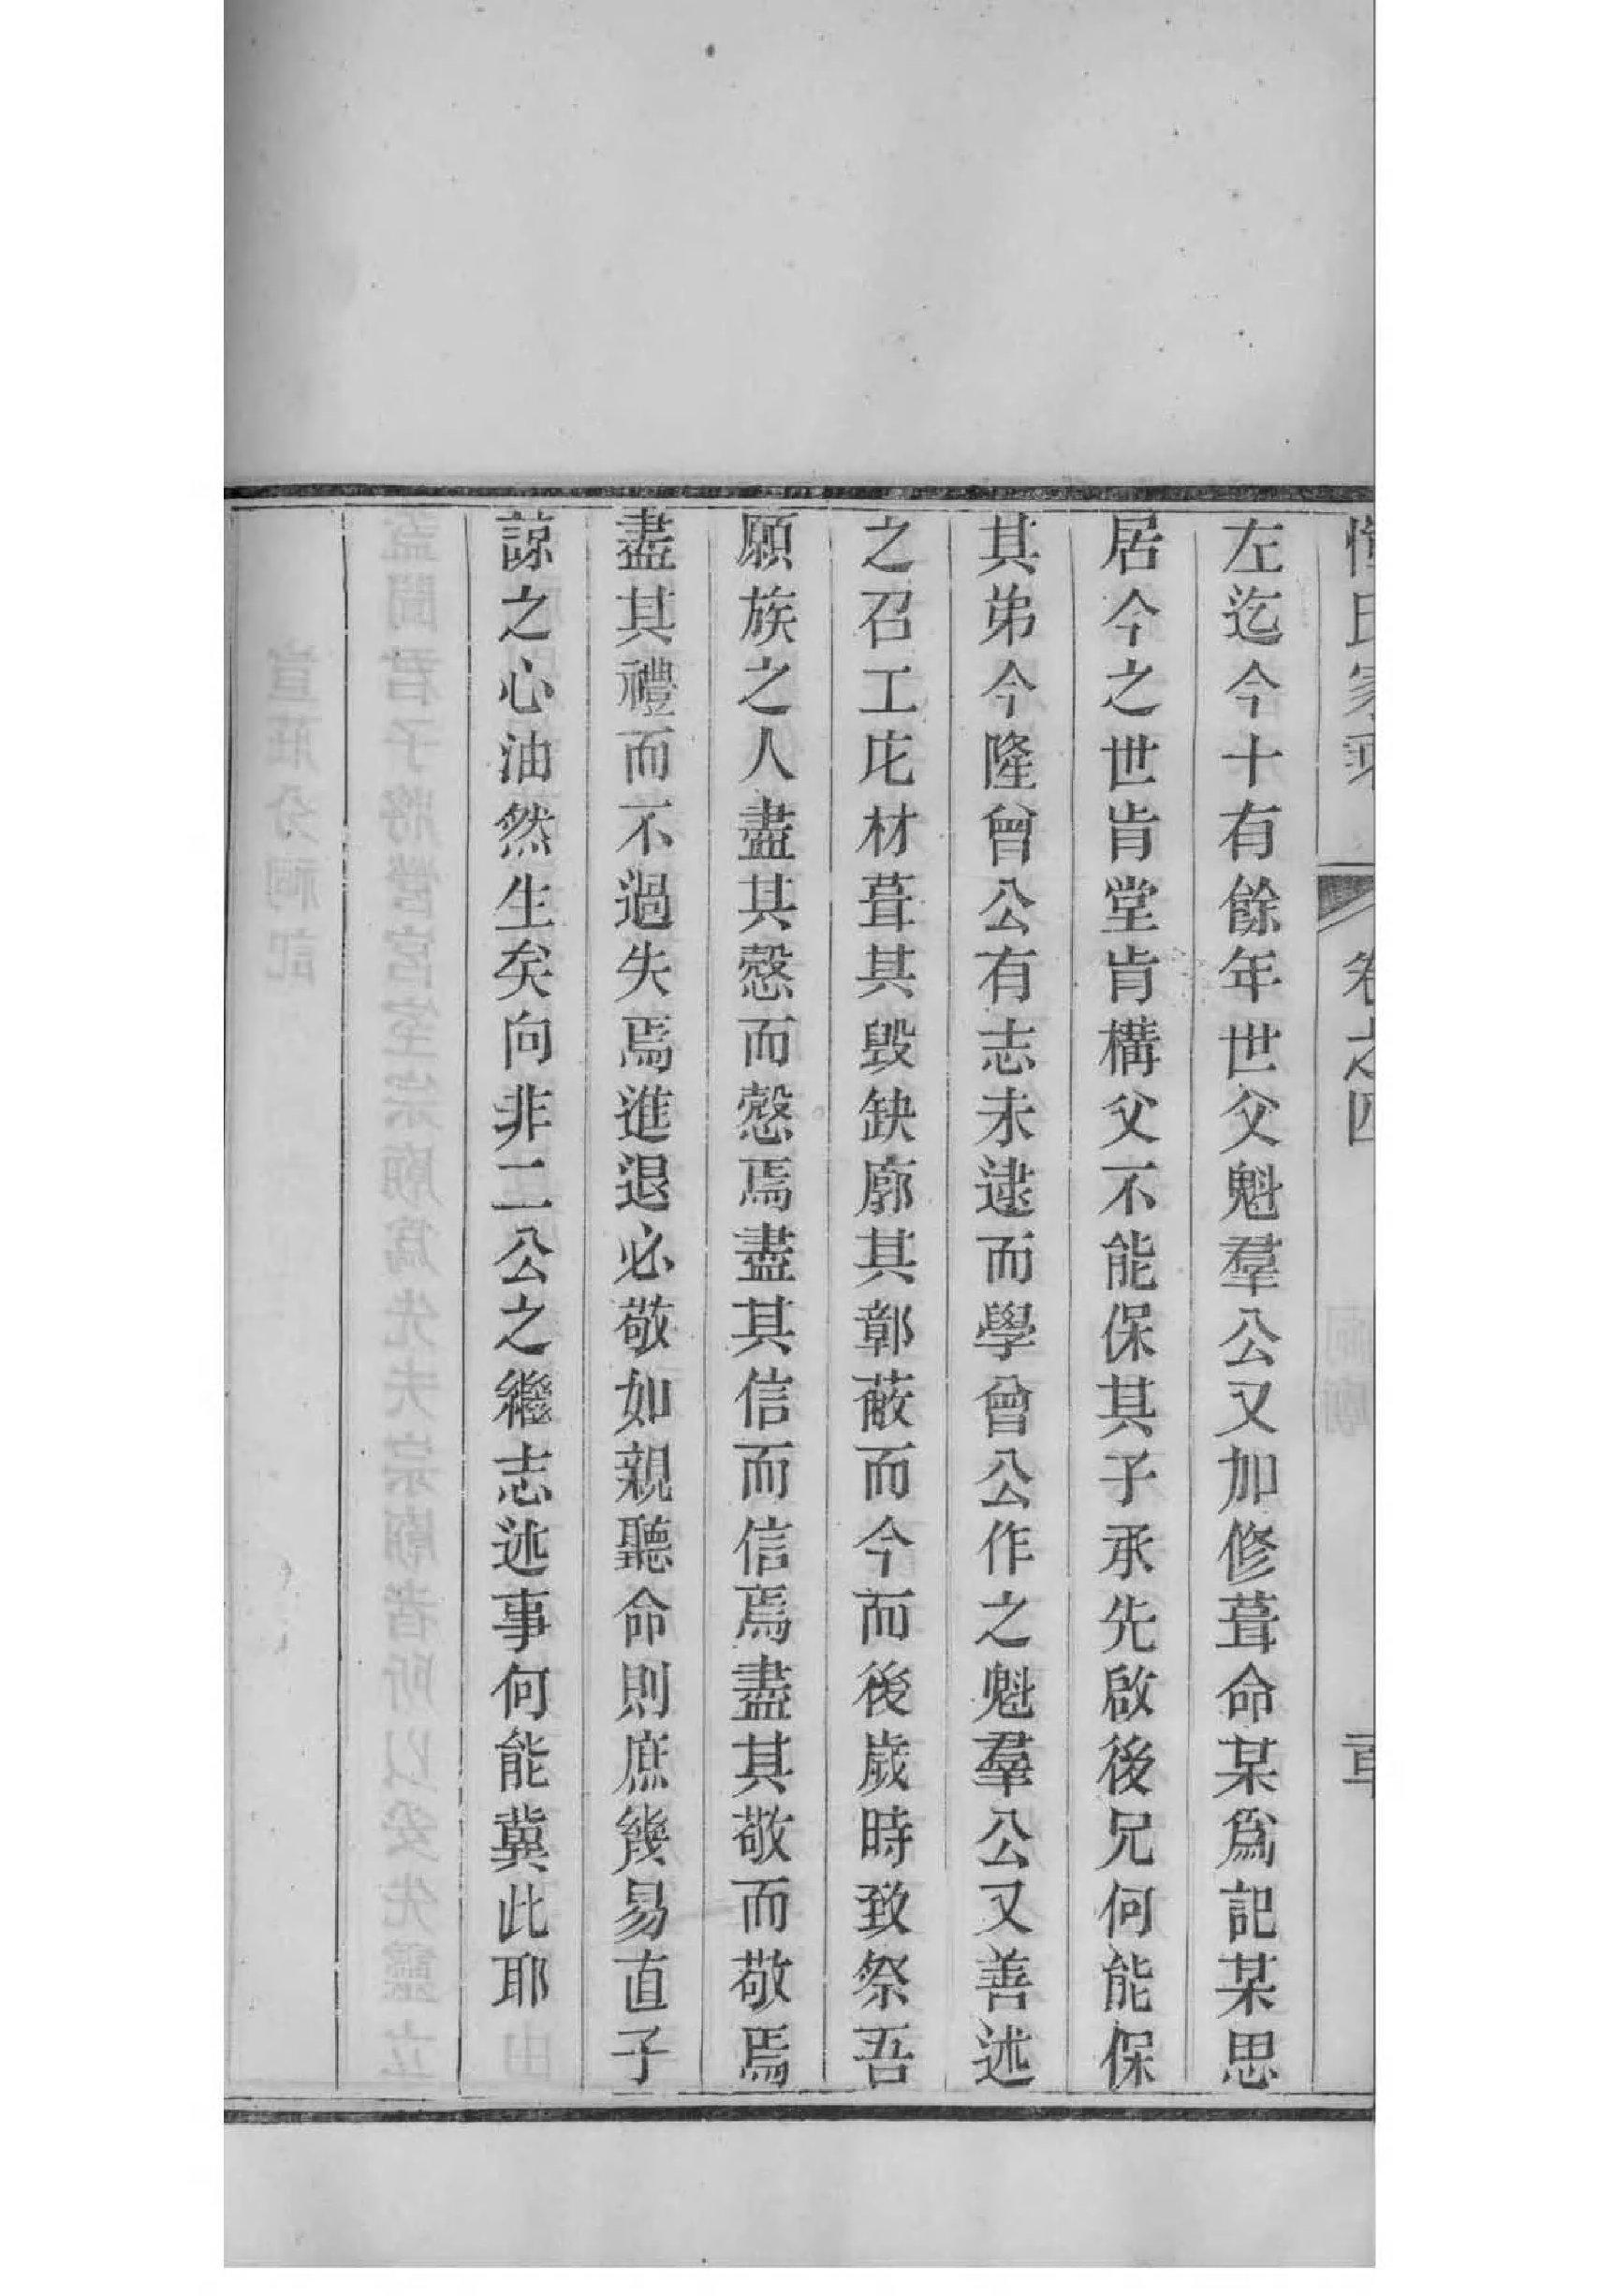 氏家乘 卷之四
左迄今十有餘年世父魁羣公又加修葺命某爲記某思
居今之世肯堂肯構父不能保其子承先啟後兄何能保
其弟今隆曾公有志未逮而學曾公作之魁羣公又善述
之召工庀材葺其毀缺廓其鄣蔽而今而後歲時致祭吾
願族之人盡其慤而慤焉盡其信而信焉盡其敬而敬焉
盡其禮而不過失焉進退必敬如親聽命則庶幾易直子
諒之心油然生矣向非二公之繼志述事何能冀此耶